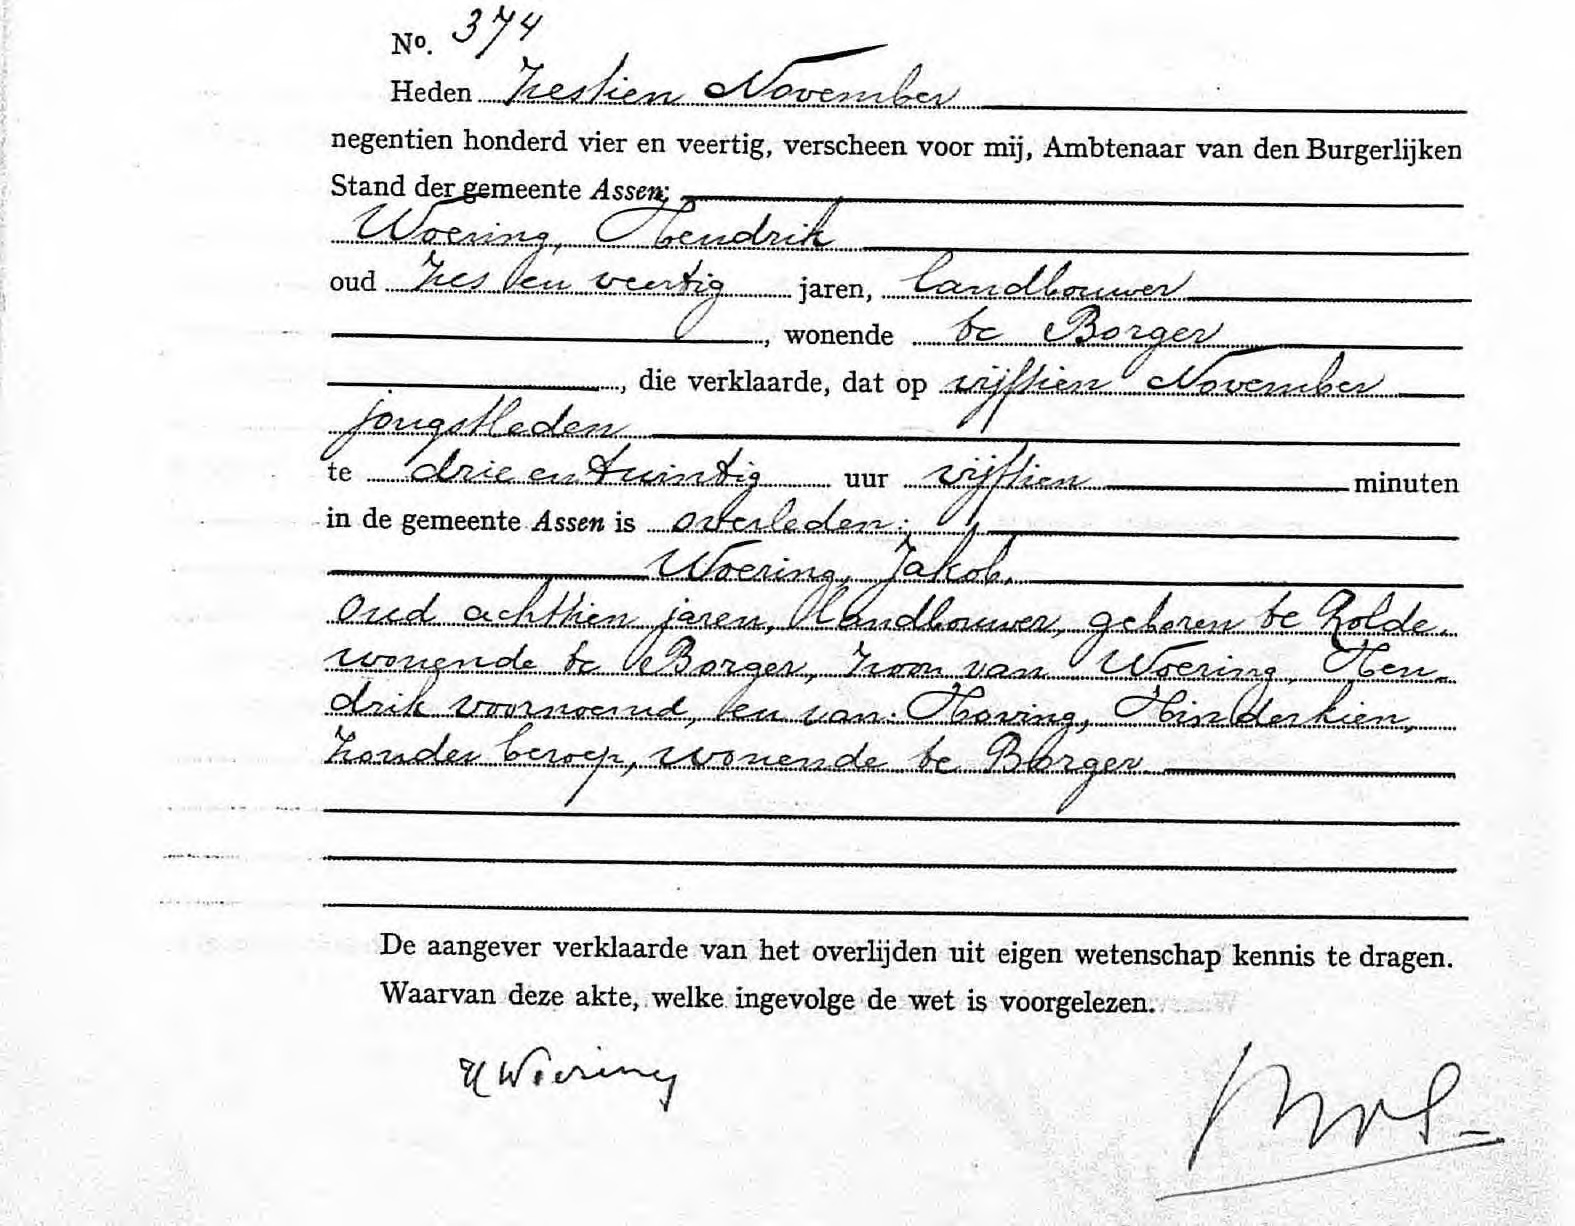 No. 374
Heden Zestien November
negentien honderd vier en veertig, verscheen voor mij, Ambtenaar van den Burgerlijken
Stand der gemeente Assen:
Woering, Hendrik
oud zes en veertig jaren, landbouwer
, wonende te Borger
, die verklaarde, dat op vijftien November
jongstleden
te drie en twintig uur vijftien minuten
in de gemeente Assen is overleden:
Woering, Jakob,
oud achttien jaren, landbouwer, geboren te Rolde,
wonende te Borger, zoon van Woering, Hen-
drik voornoemd, en van: Hoving, Hinderkien,
zonder beroep, wonende te Borger
De aangever verklaarde van het overlijden uit eigen wetenschap kennis te dragen.
Waarvan deze akte, welke ingevolge de wet is voorgelezen.
H Woering